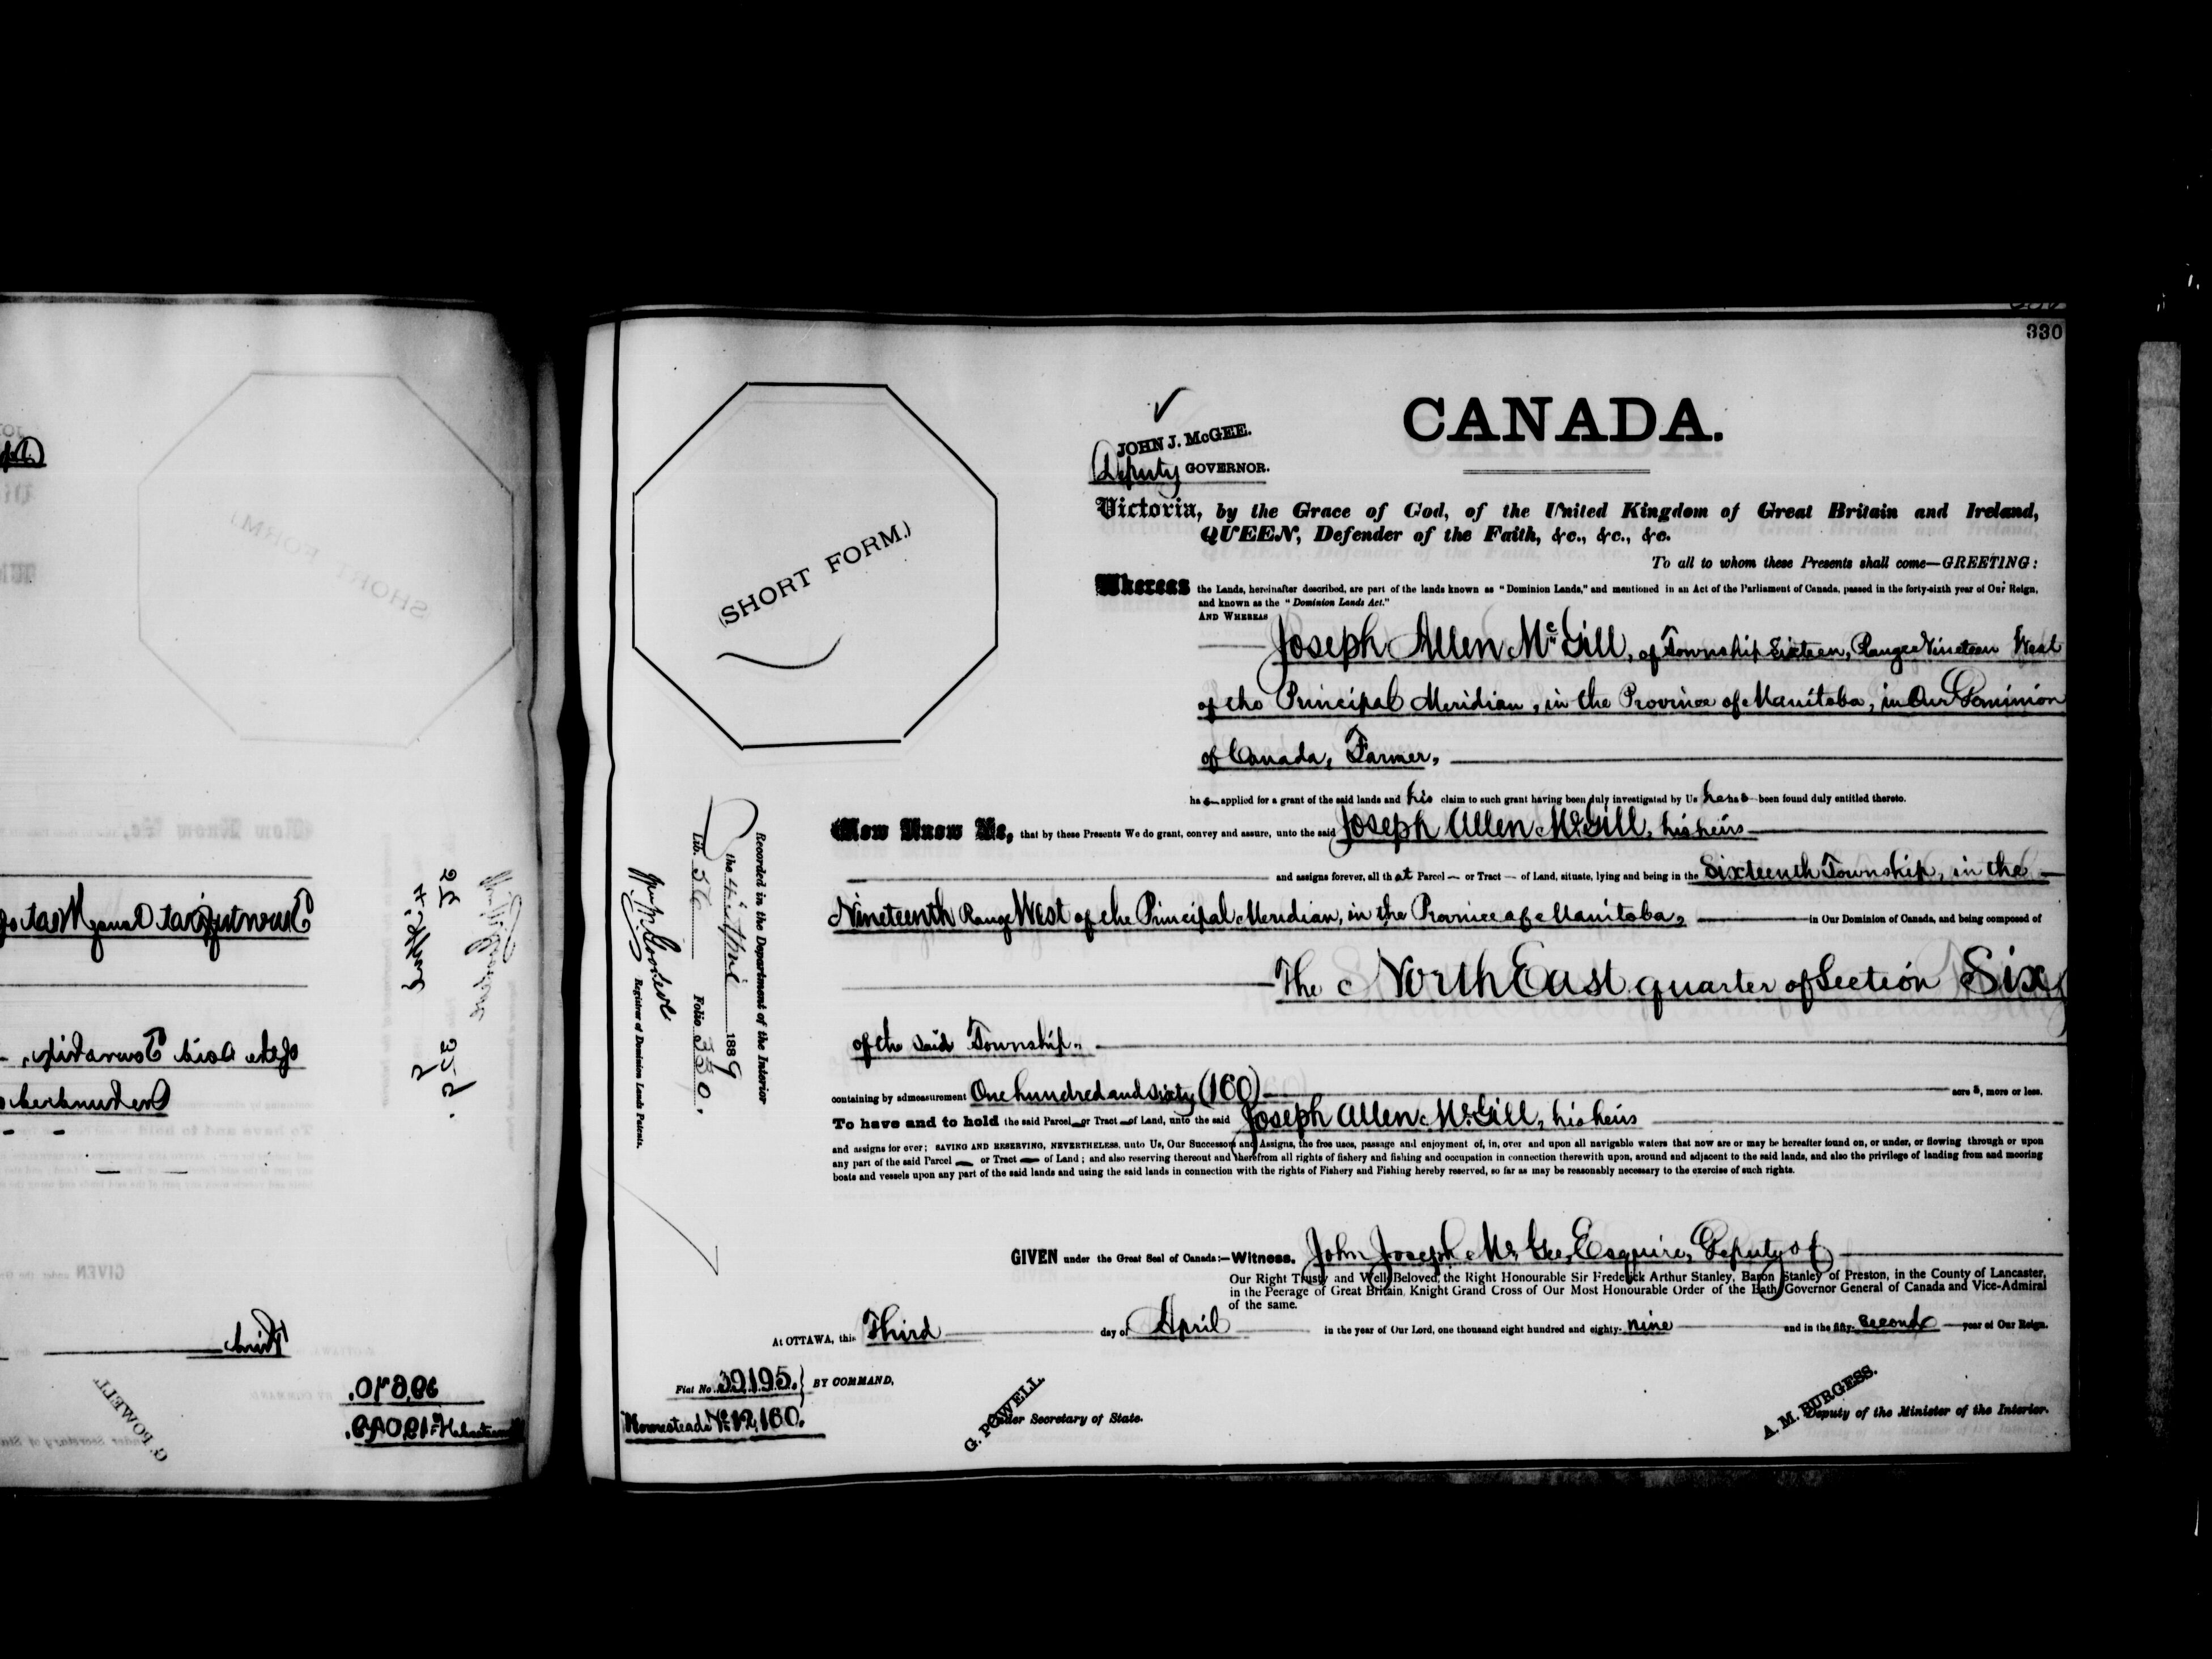 330
CANADA.
JOHN J. McGEE.
Deputy GOVERNOR.
(SHORT FORM.)
Victoria, by the Grace of God, of the United Kingdom of Great Britain and Ireland,
QUEEN, Defender of the Faith, &c., &c., &c.
To all to whom these Presents shall come—GREETING:
Whereas the Lands, hereinafter described, are part of the lands known as "Dominion Lands," and mentioned in an Act of the Parliament of Canada, passed in the forty-sixth year of Our Reign,
and known as the "Dominion Lands Act."
AND WHEREAS
Joseph Allen McGill, of Township Sixteen, Range Nineteen West
of the Principal Meridian, in the Province of Manitoba, in Our Dominion
of Canada, Farmer,
has applied for a grant of the said lands and his claim to such grant having been duly investigated by Us he has been found duly entitled thereto.
Now Know Ye, that by these Presents We do grant, convey and assure, unto the said Joseph Allen McGill, his heirs
and assigns forever, all that Parcel or Tract of Land, situate, lying and being in the Sixteenth Township, in the
Nineteenth Range West of the Principal Meridian, in the Province of Manitoba, in Our Dominion of Canada, and being composed of
The North East quarter of Section Six,
of the said Township.
containing by admeasurement One hundred and sixty (160) acres, more or less.
To have and to hold the said Parcel or Tract of Land, unto the said Joseph Allen McGill, his heirs
and assigns for ever; SAVING AND RESERVING, NEVERTHELESS, unto Us, Our Successors and Assigns, the free uses, passage and enjoyment of, in, over and upon all navigable waters that now are or may be hereafter found on, or under, or flowing through or upon
any part of the said Parcel or Tract of Land; and also reserving thereout and therefrom all rights of fishery and fishing and occupation in connection therewith upon, around and adjacent to the said lands, and also the privilege of landing from and mooring
boats and vessels upon any part of the said lands and using the said lands in connection with the rights of Fishery and Fishing hereby reserved, so far as may be reasonably necessary to the exercise of such rights.
GIVEN under the Great Seal of Canada:—Witness, John Joseph McGee, Esquire, Deputy of
Our Right Trusty and Well Beloved, the Right Honourable Sir Frederick Arthur Stanley, Baron Stanley of Preston, in the County of Lancaster,
in the Peerage of Great Britain, Knight Grand Cross of Our Most Honourable Order of the Bath, Governor General of Canada and Vice-Admiral
of the same.
At OTTAWA, this Third day of April in the year of Our Lord, one thousand eight hundred and eighty-nine and in the fifty-second year of Our Reign.
Fiat No. 39195. BY COMMAND,
Homestead No. 12,160.
G. POWELL.
Under Secretary of State.
A. M. BURGESS.
Deputy of the Minister of the Interior.
Recorded in the Department of the Interior
the 4th April 1889
Lib. 56 Folio 330.
Registrar of Dominion Lands Patents.